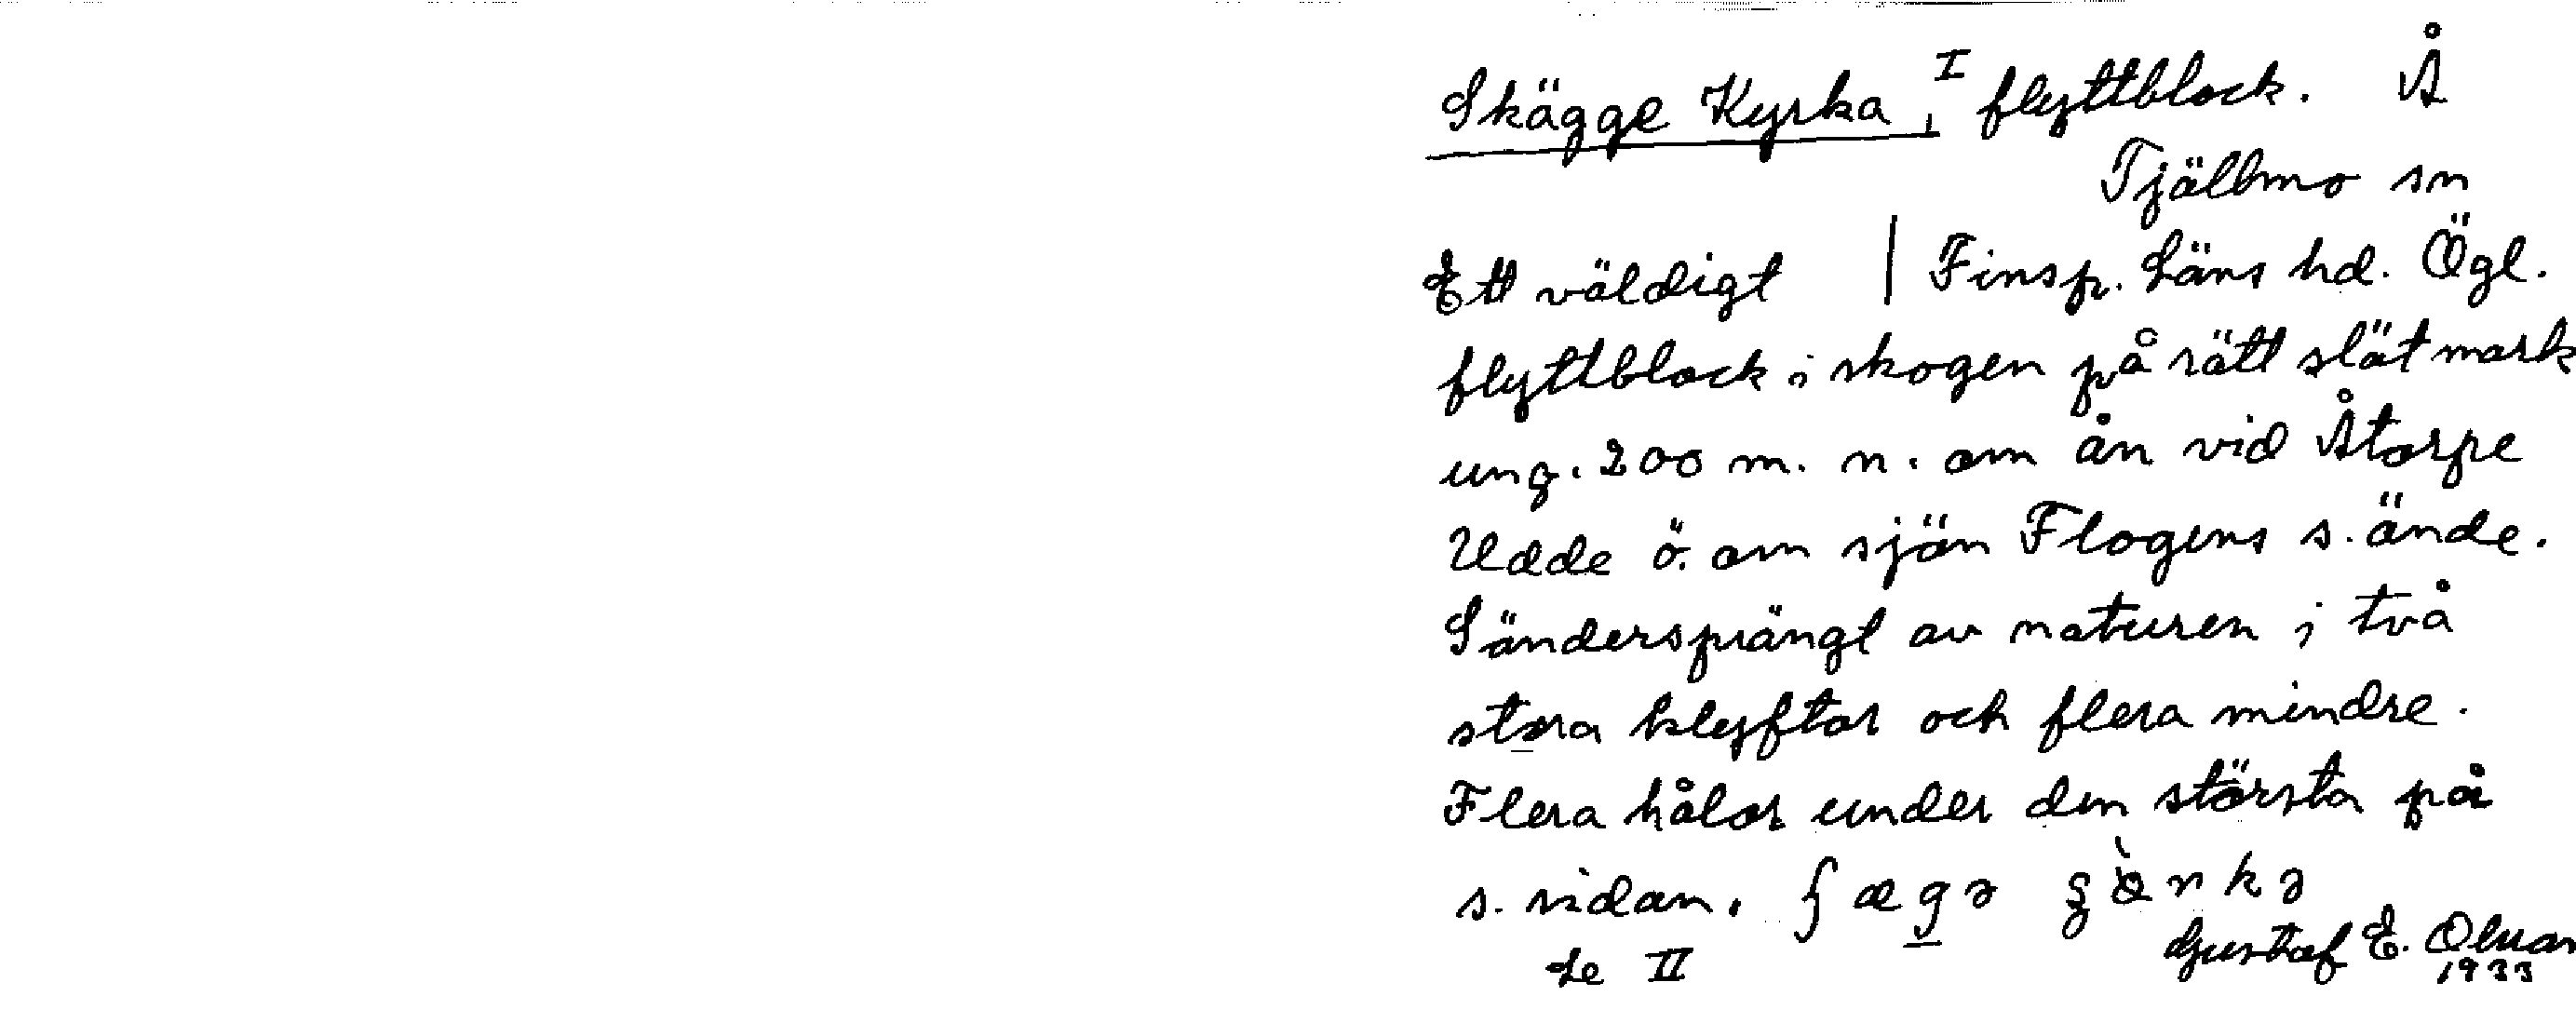 Skägge Kyrka, I flyttblock. Å
Tjällmo sn
Ett väldigt | Finsp. Läns hd. Ögl.
flyttblock i skogen på rätt slät mark
ung. 200 m. n. om ån vid Åtorpe
Udde ö. om sjön Flogens s. ände.
Söndersprängt av naturen i två
stora klyftor och flera mindre.
Flera hålor under den största på
s. sidan. ʃægə
Se II Gustaf E. Olsson
1933